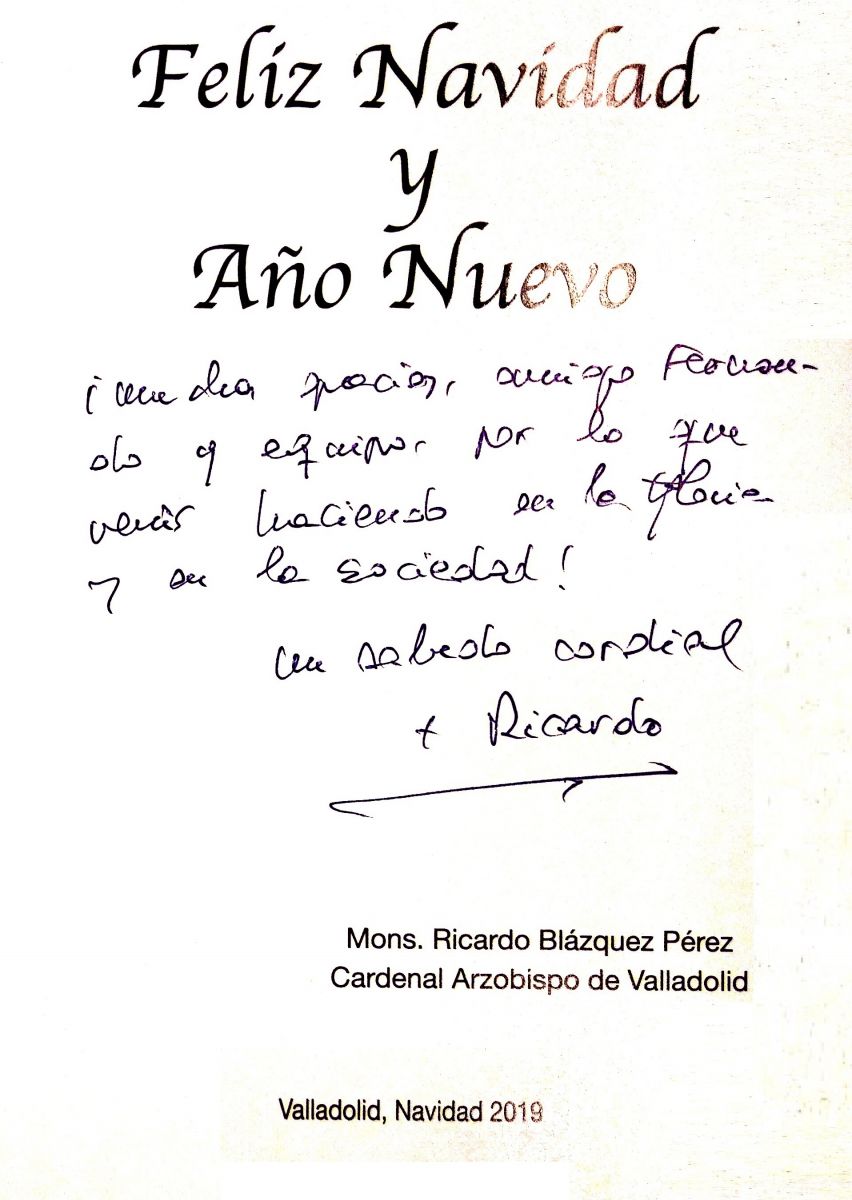 Feliz Navidad
y
Año Nuevo
¡muchas gracias, amigo Fernan-
do y equipo, por lo que
venís haciendo en la Iglesia
y en la sociedad!
un saludo cordial
+ Ricardo
Mons. Ricardo Blázquez Pérez
Cardenal Arzobispo de Valladolid
Valladolid, Navidad 2019